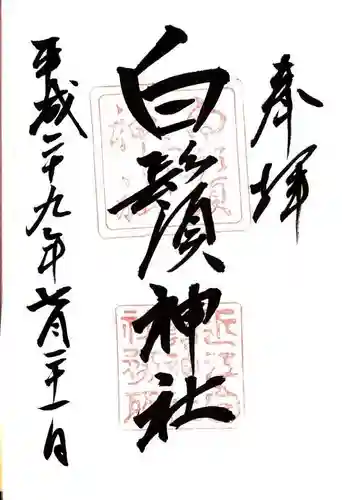 奉拝
白鬚神社
平成二十九年七月二十一日